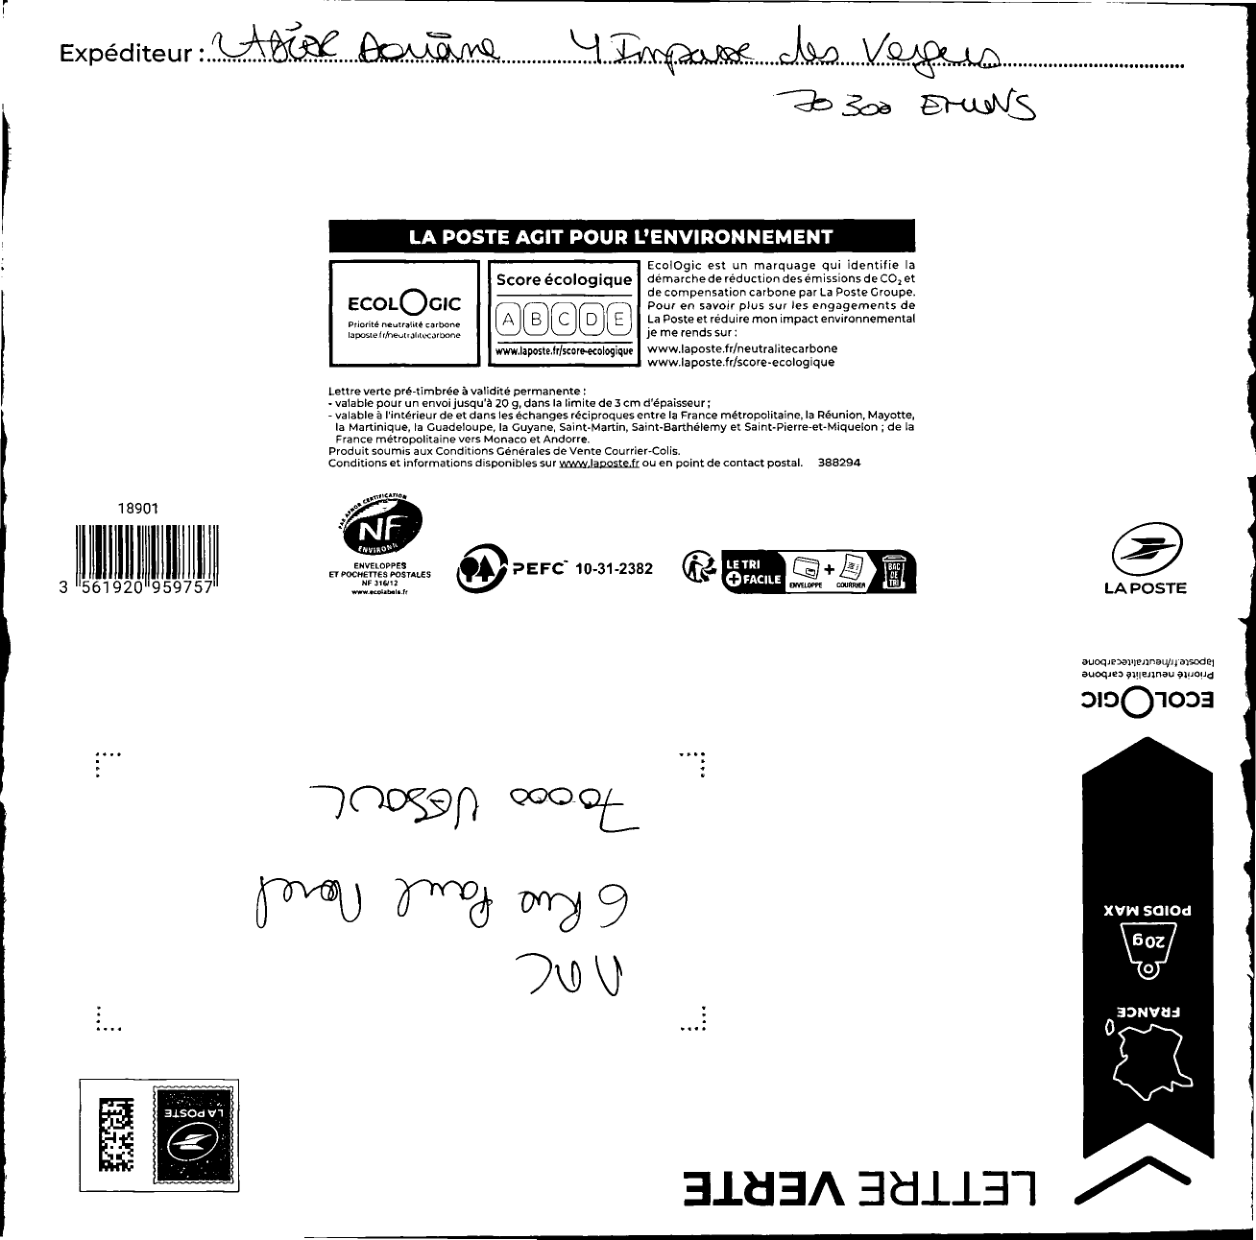 Expéditeur : Douäne 4 Impasse des Vergers
70300
LA POSTE AGIT POUR L'ENVIRONNEMENT
ECOLOGIC
Priorité neutralité carbone
laposte.fr/neutralitecarbone
Score écologique
A B C D E
www.laposte.fr/score-ecologique
EcolOgic est un marquage qui identifie la
démarche de réduction des émissions de CO₂ et
de compensation carbone par La Poste Groupe.
Pour en savoir plus sur les engagements de
La Poste et réduire mon impact environnemental
je me rends sur :
www.laposte.fr/neutralitecarbone
www.laposte.fr/score-ecologique
Lettre verte pré-timbrée à validité permanente :
- valable pour un envoi jusqu'à 20 g, dans la limite de 3 cm d'épaisseur ;
- valable à l'intérieur de et dans les échanges réciproques entre la France métropolitaine, la Réunion, Mayotte,
la Martinique, la Guadeloupe, la Guyane, Saint-Martin, Saint-Barthélemy et Saint-Pierre-et-Miquelon ; de la
France métropolitaine vers Monaco et Andorre.
Produit soumis aux Conditions Générales de Vente Courrier-Colis.
Conditions et informations disponibles sur www.laposte.fr ou en point de contact postal. 388294
18901
3 561920 959757
PAR AFNOR CERTIFICATION
NF
ENVIRONN
ENVELOPPES
ET POCHETTES POSTALES
NF 316/12
www.ecolabels.fr
PEFC 10-31-2382
LE TRI
+ FACILE
ENVELOPPE
+
COURRIER
BAC
DE
TRI
LA POSTE
LETTRE VERTE
LA POSTE
FRANCE
20g
POIDS MAX
ECOLOGIC
Priorité neutralité carbone
laposte.fr/neutralitecarbone
6 Rue Paul Morel
70000 VESOUL